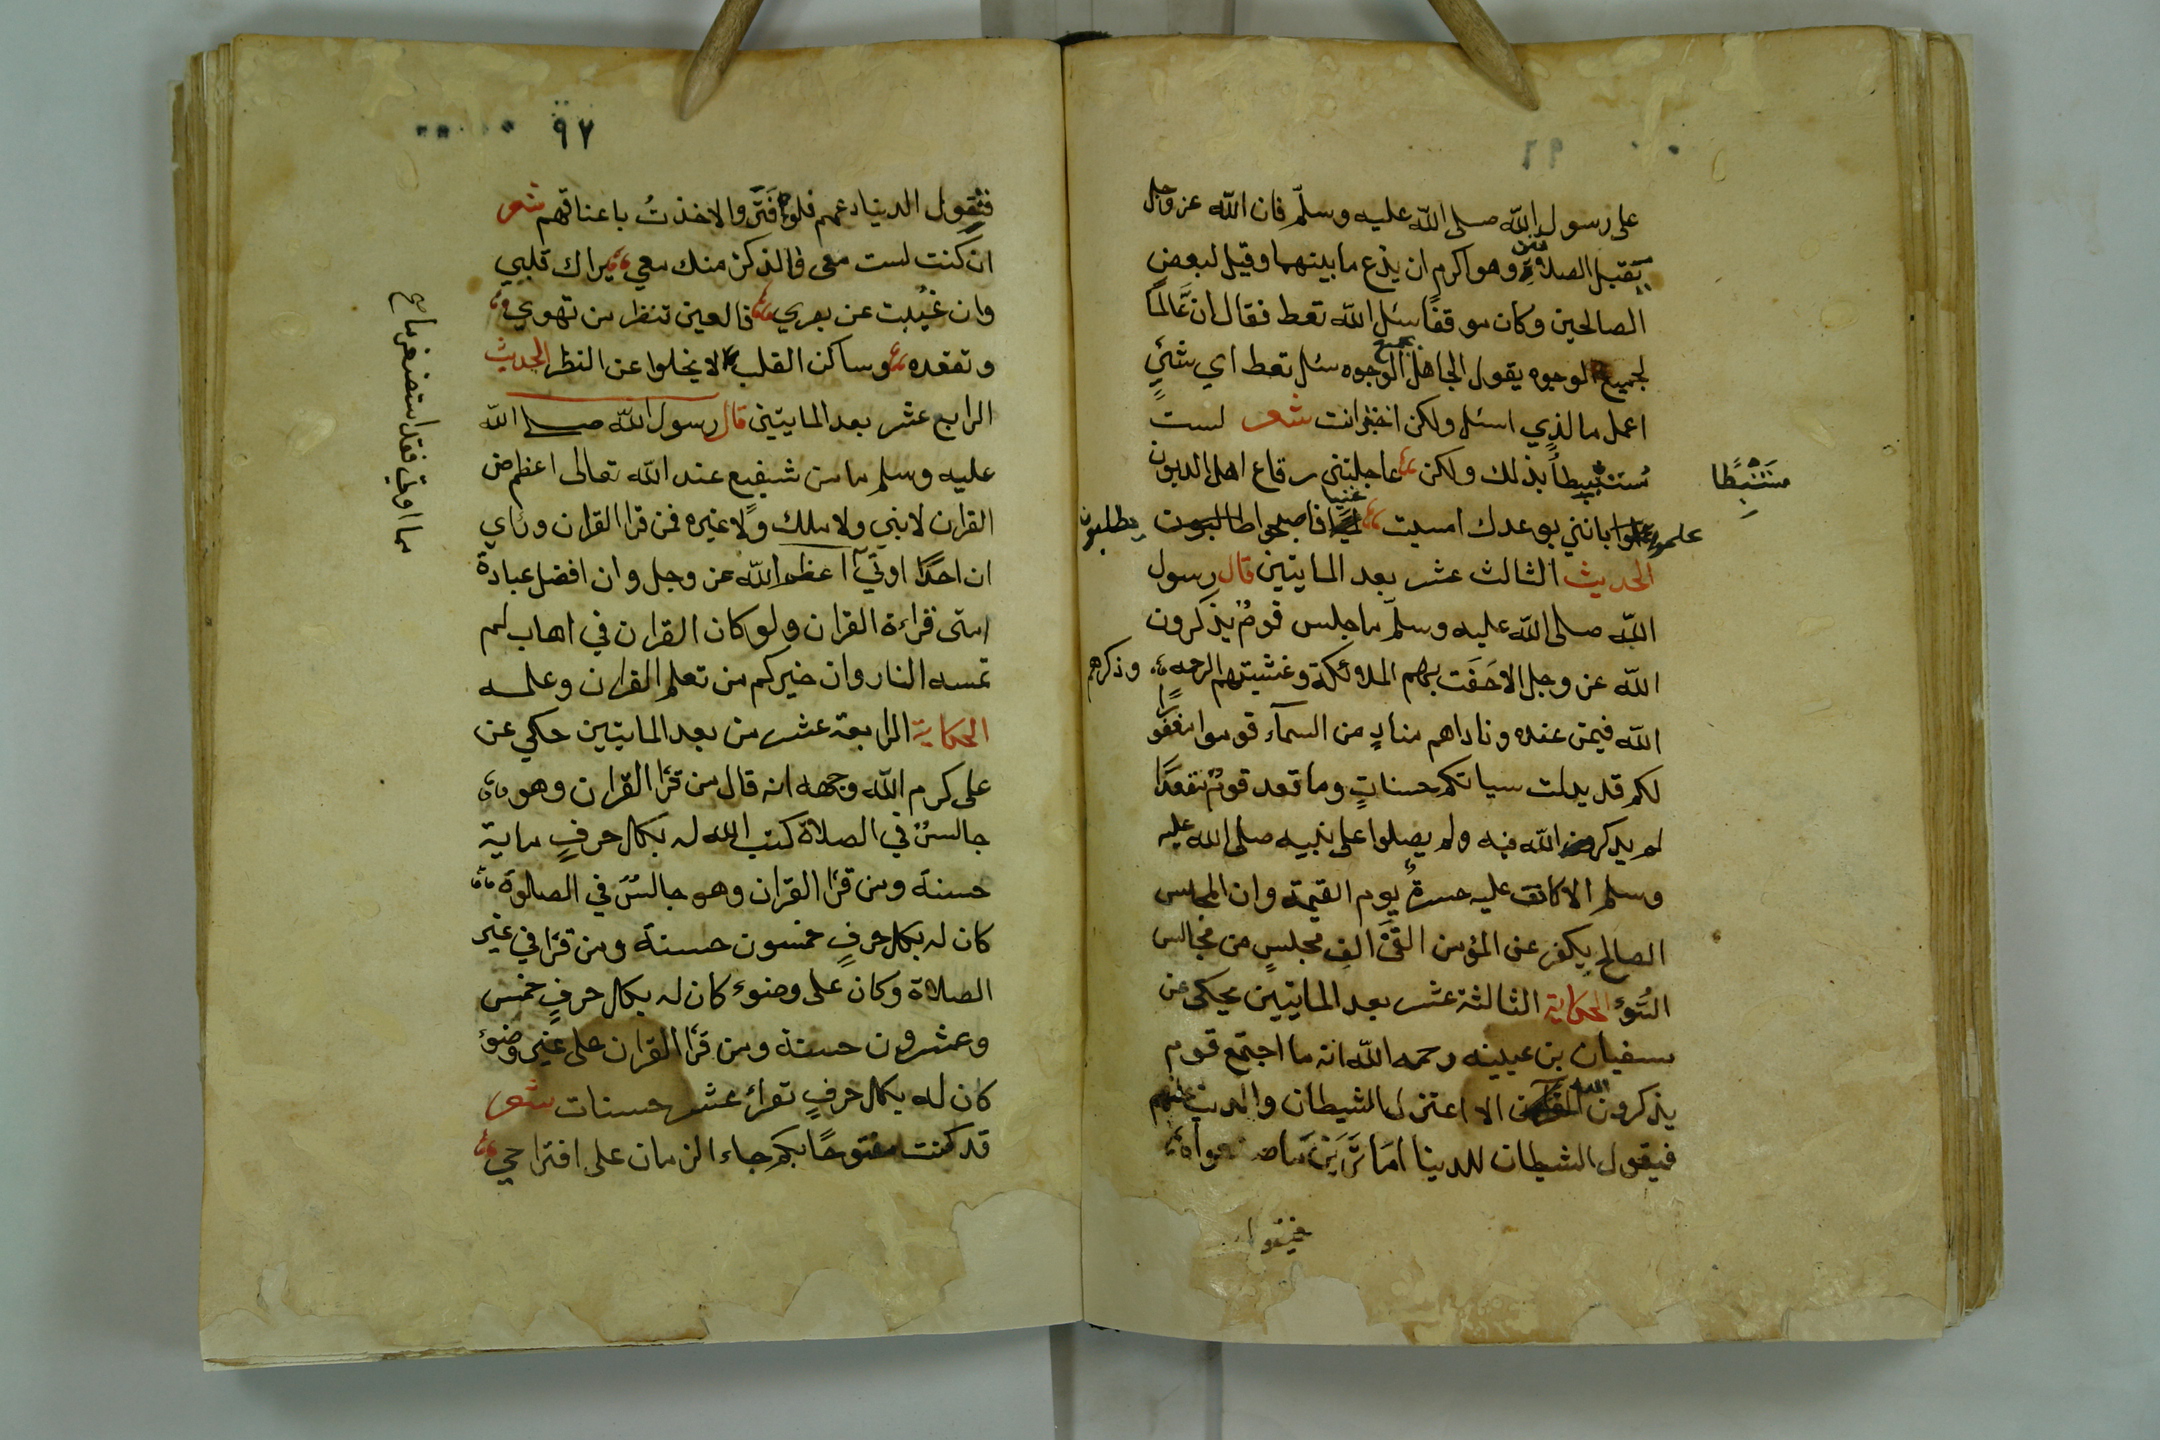 على رسول الله صلى الله عليه وسلّم فان الله عز وجل
يقبل الصلاتين وهو اكرم ان يدع ما بينهما وقيل لبعض
الصالحين وكان موقفًا سئل الله تعط فقال ان عَالمًا
لجميع الوجوه يقول الجاهل بجميع الوجوه سئل تعط اي شئٍ
اعمل مالذي اسئل ولكن اختر انت شعر لست
مُستبطأً بذلك ولكن عاجلتني رقاع اهل الديون
مستبطًا
علموا بانني بوعدك امسيت غنيا فاصبحوا يطلبون
الحديث الثالث عشر بعد المايتين قال رسول
الله صلى الله عليه وسلّم ما جلس قومٌ يذكرون
الله عز وجل الا حَفَت بهم الملائكة وغشيتهم الرحمة وذكرهم
الله فيمن عنده وناداهم منادٍ من السمآء قوموا مغفورًا
لكم قد بدلت سياتكم حسناتٍ وما قعد قومٌ مقعدًا
لم يذكرو الله فيه ولم يصلوا على نبيه صلى الله عليه
وسلم الا كانت عليه حسرةٌ يوم القيمة وان المجلس
الصالح يكفر عن المؤمن الفَىْ الفِ مجلسٍ من مجالس
السُوء الحكاية الثالثة عشر بعد المايتين يحكى عن
سفيان بن عيينه رحمه الله انه ما اجتمع قوم
يذكرون الله الا اعتزل الشيطان والدنيا عنهم
فيقول الشيطان للدينا امَا تَرَيْنَ ما صنعواه
فيقول
٩٧
فتقول الدينا دعهم فلو افتَرَّوا لاخذتُ باعناقهم شعر
ان كنت لست معى فالذكر منك معي يراك قلبي
وان غُيبت عن بصري فالعين تنظر من تهوي
وتفقده وساكن القلب لا يخلوا عن النظر الحديث
الرابع عشر بعد المايتين قال رسول الله صلى الله
عليه وسلم ما من شفيع عند الله تعالى اعظم من
القران لا نبي ولا ملك ولا غيره فمن قرا القران وراي
ان احدًا اوتي اعظم الله عز وجل وان افضل عبادة
امتى قراءة القران ولو كان القران في اهاب لم
تمسه النار وان خيركم من تعلم القران وعلمه
الحكاية الرابعة عشر من بعد المايتين حكي عن
على كرم الله وجهه انه قال من قرَا القران وهو
جالسٌ في الصلاة كتب الله له بكل حرفٍ ماية
حسنة ومن قرَا القران وهو جالسٌ في الصلوة
كان له بكل حرفٍ خمسون حسنة ومن قرَا في غير
الصلاة وكان على وضوء كان له بكل حرفٍ خمس
وعشرون حسنة ومن قرَا القران على غير وضوء
كان له بكل حرفٍ تقراء عشر حسنات شعر
قد كنت مفتوحًا بكم جاء الزمان على اقتراحي
مما اوتي فقد استصغر ما